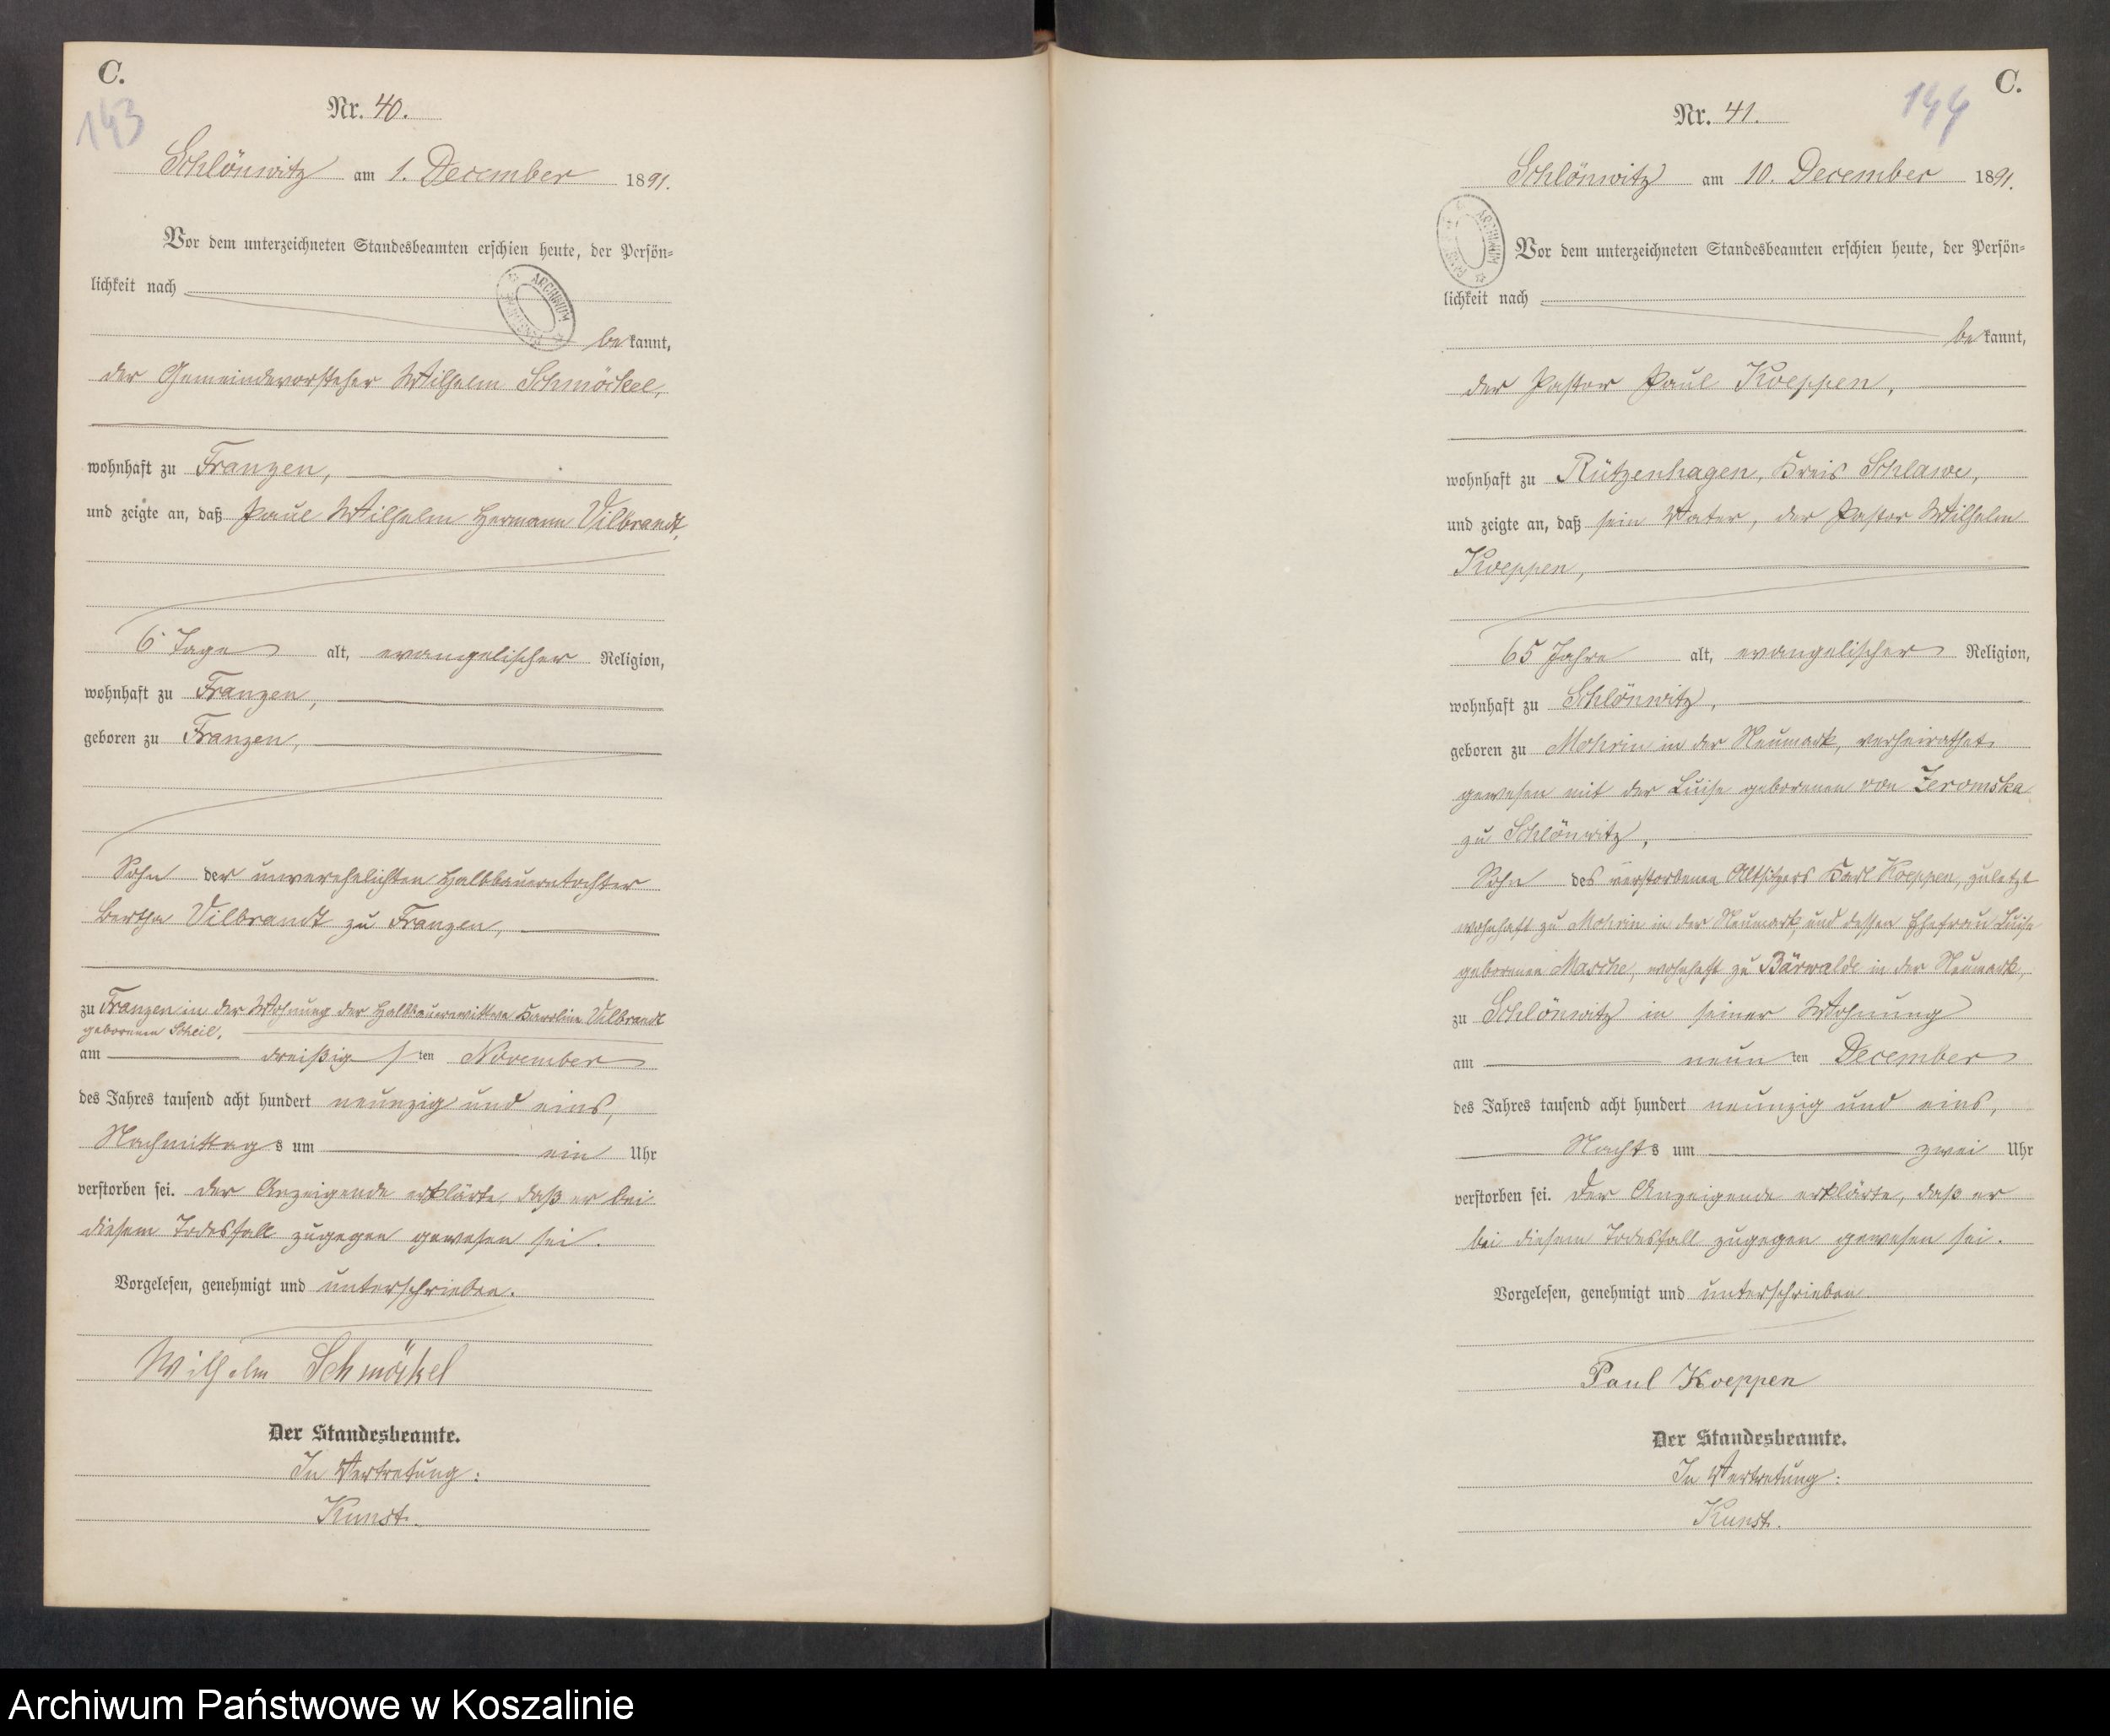 C.
143
Nr. 40.
Schlönwitz am 1. December 1891.
Vor dem unterzeichneten Standesbeamten erschien heute, der Persön-
lichkeit nach
ARCHIWUM
bekannt,
der Gemeindevorsteher Wilhelm Schmöckel,
wohnhaft zu Franzen,
und zeigte an, daß Paul Wilhelm Hermann Vilbrandt,
6 Tage alt, evangelischer Religion,
wohnhaft zu Franzen,
geboren zu Franzen,
Sohn der unverehelichten Halbbauerntochter
Bertha Vilbrandt zu Franzen,
zu Franzen in der Wohnung der Halbbauernwittwe Karoline Vilbrandt
geborenen Scheil,
am dreißigsten November
des Jahres tausend acht hundert neunzig und eins,
Nachmittags um ein Uhr
verstorben sei. Der Anzeigende erklärte, daß er bei
diesem Todesfall zugegen gewesen sei.
Vorgelesen, genehmigt und unterschrieben.
Wilhelm Schmöckel
Der Standesbeamte.
In Vertretung:
Kunst.
C.
144
Nr. 41.
Schlönwitz am 10. December 1891.
ARCHIWUM
Vor dem unterzeichneten Standesbeamten erschien heute, der Persön-
lichkeit nach
bekannt,
der Pastor Paul Koeppen,
wohnhaft zu Rützenhagen, Kreis Schlawe,
und zeigte an, daß sein Vater, der Pastor Wilhelm
Koeppen,
65 Jahre alt, evangelischer Religion,
wohnhaft zu Schlönwitz,
geboren zu Mohrin in der Neumark, verheirathet
gewesen mit der Luise geborenen von Zeromska
zu Schlönwitz,
Sohn des verstorbenen Altsitzers Karl Koeppen, zuletzt
wohnhaft zu Mohrin in der Neumark, und dessen Ehefrau Luise
geborenen Masche, wohnhaft zu Bärwalde in der Neumark,
zu Schlönwitz in seiner Wohnung
am neunten December
des Jahres tausend acht hundert neunzig und eins,
Nachts um zwei Uhr
verstorben sei. Der Anzeigende erklärte, daß er
bei diesem Todesfall zugegen gewesen sei.
Vorgelesen, genehmigt und unterschrieben.
Paul Koeppen
Der Standesbeamte.
In Vertretung:
Kunst.
Archiwum Państwowe w Koszalinie